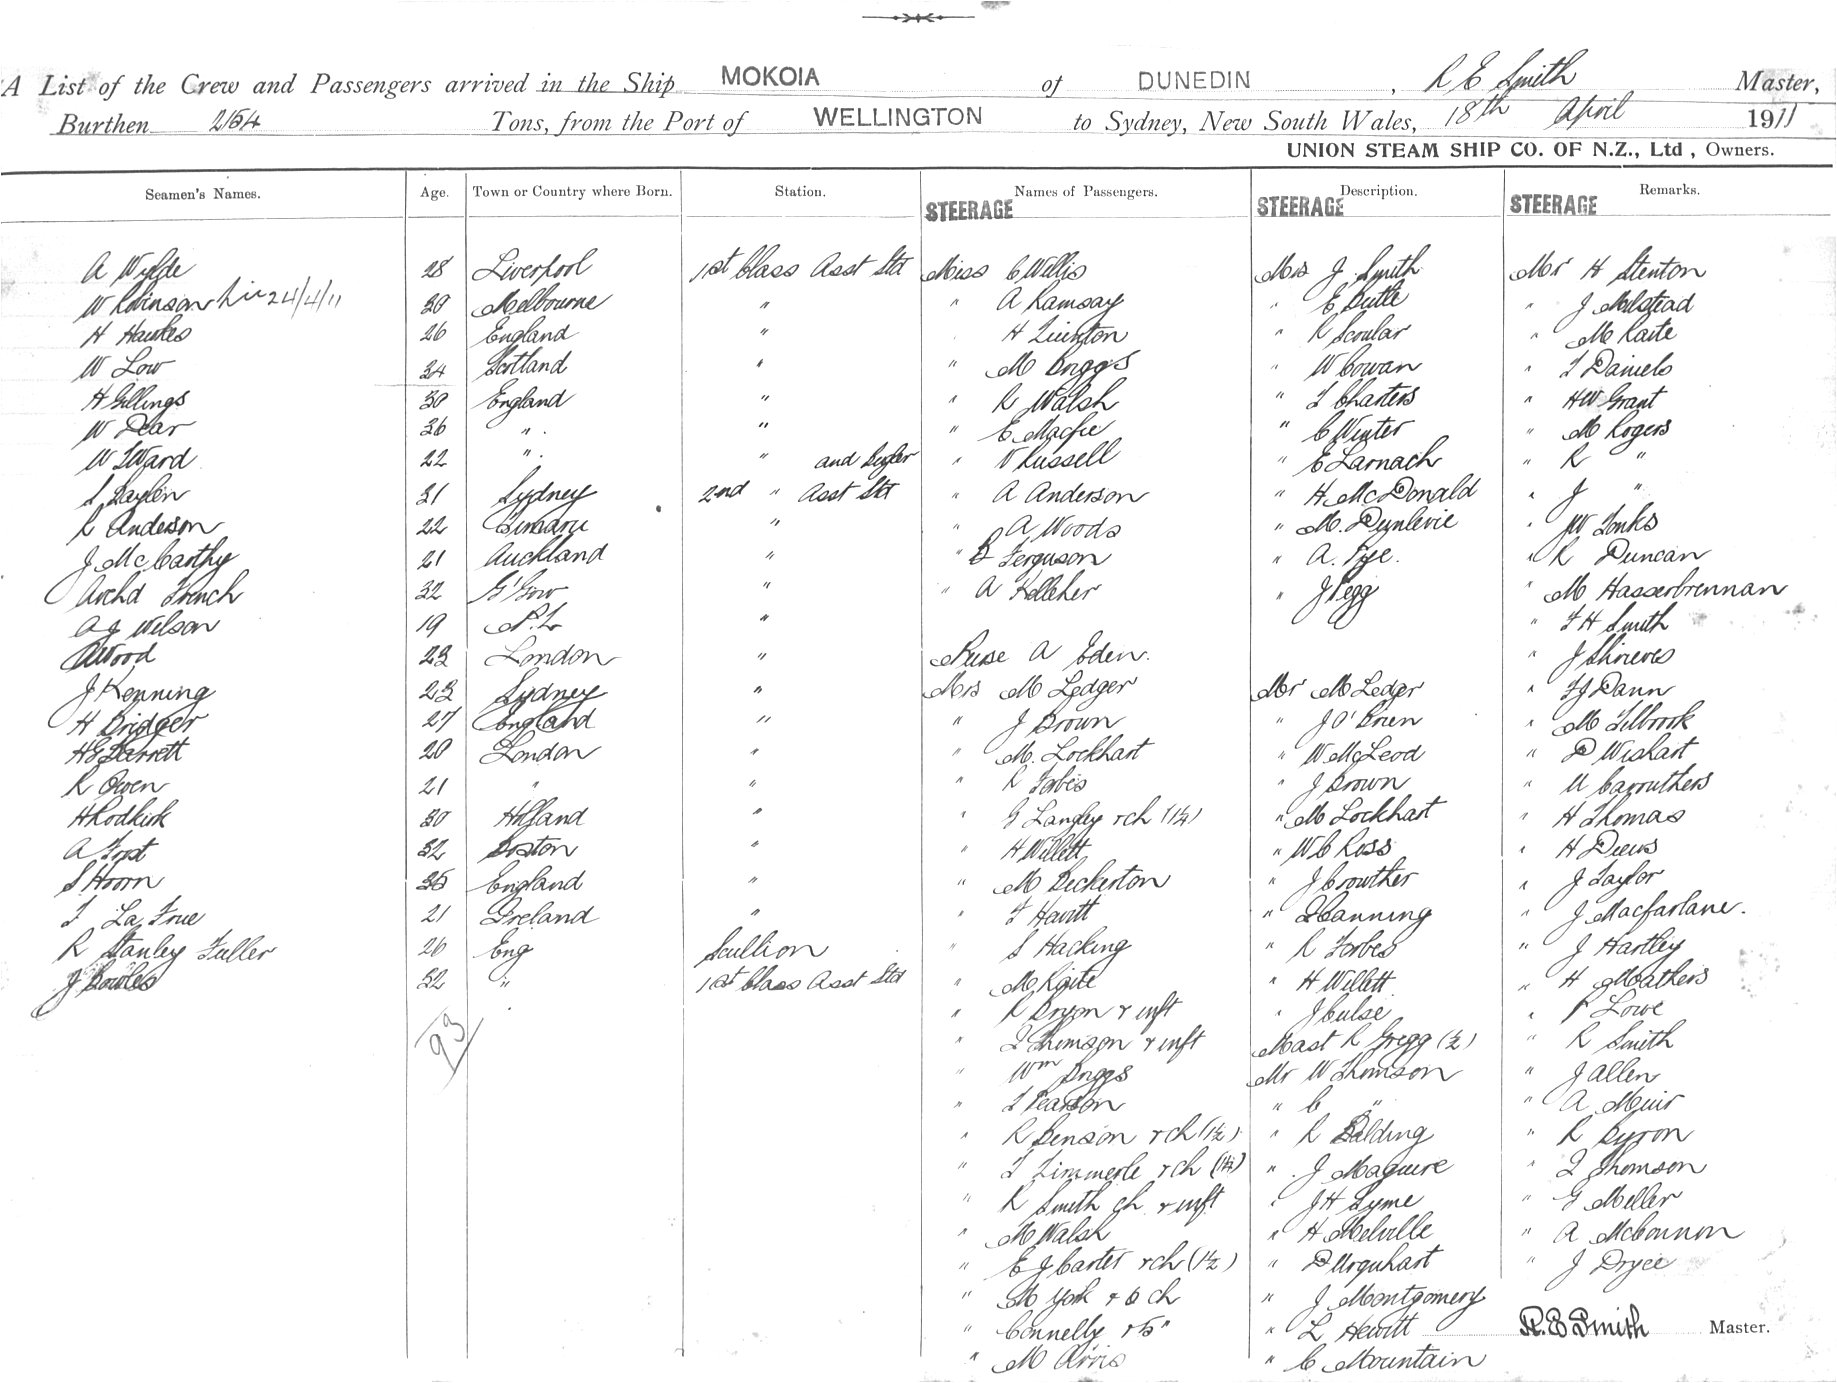 A List of the Crew and Passengers arrived in the Ship MOKOIA of DUNEDIN, R E Smith Master,
Burthen 2154 Tons, from the Port of WELLINGTON to Sydney, New South Wales, 18th April 1911
UNION STEAM SHIP CO. OF N.Z., Ltd, Owners.
Seamen's Names. Age. Town or Country where Born. Station. Names of Passengers. Description. Remarks.
STEERAGE STEERAGE STEERAGE
A Wylde 28 Liverpool 1st Class Asst Std Miss C Willis Mrs J. Smith Mr H Stenton
W Robinson 24/4/11 30 Melbourne " " A Ramsay " E " J Milstead
H Hawkes 26 England " H Linton " R Scoular " M Raite
W Low 34 Scotland " " M Briggs " W Cowan " T Daniels
H Gillings 30 England " " R Walsh " T Charters " HW Grant
W Dear 36 " " " E Macfie " C Winter " M Rogers
W Ward 22 " " and " Russell " E Larnach " R "
S 31 Sydney 2nd " Asst Std " A Anderson " H McDonald " J "
R Anderson 22 Timaru " " A Woods " M. Dunlevie " W Tonks
J McCarthy 21 Auckland " " Ferguson " A. Pye. " R Duncan
Archd French 32 G'Gow " " A Kelleher " J Pegg " M Hasserbrennan
A J Wilson 19 " " F H Smith
Wood 23 London " Nurse A Eden. " J Shrieves
J Kenning 23 Sydney " Mrs M Ledger Mr M Ledger " Dann
H Bridger 27 England " " J Brown " J O'Brien " M Tilbrook
H G Barrett 20 London " " M. Lockhart " W McLeod " D Wishart
R Owen 21 " " " R Forbes " J Brown " Carruthers
H Rodkirk 30 Holland " " G Langley + ch (1½) " M Lockhart " H Thomas
A Frost 32 Boston " " H Willett " W C Ross " H Drews
S Hoorn 35 England " " M Beckerton " J Crowther " J Taylor
T La Frue 21 Ireland " " T Hewitt " Canning " J Macfarlane.
R Stanley Fuller 26 Eng Scullion " S Hacking " R Forbes " J Hartley
J Bowles 32 " 1st Class Asst Std " M Raite " H Willett " H Mathers
93 " R Bryon + inft " J Culse " P Lowe
" Thomson + inft Mast R Gregg (½) " R Smith
" Wm Briggs Mr W Thomson " J Allen
" Pearson " C " " A Muir
" R Benson + ch (1½) " R Balding " R Byron
" T Timmerle + ch (1½) " J Maguire " Thomson
" R Smith ch + inft " J H Syme " G Miller
" M Walsh " H Melville " A McConnon
" E J Carter + ch (1½) " D Urquhart " J Dryce
" M York + 6 ch " J Montgomery
" Connelly + 5 " " L Hewitt R.E Smith Master.
" M " C Mountain